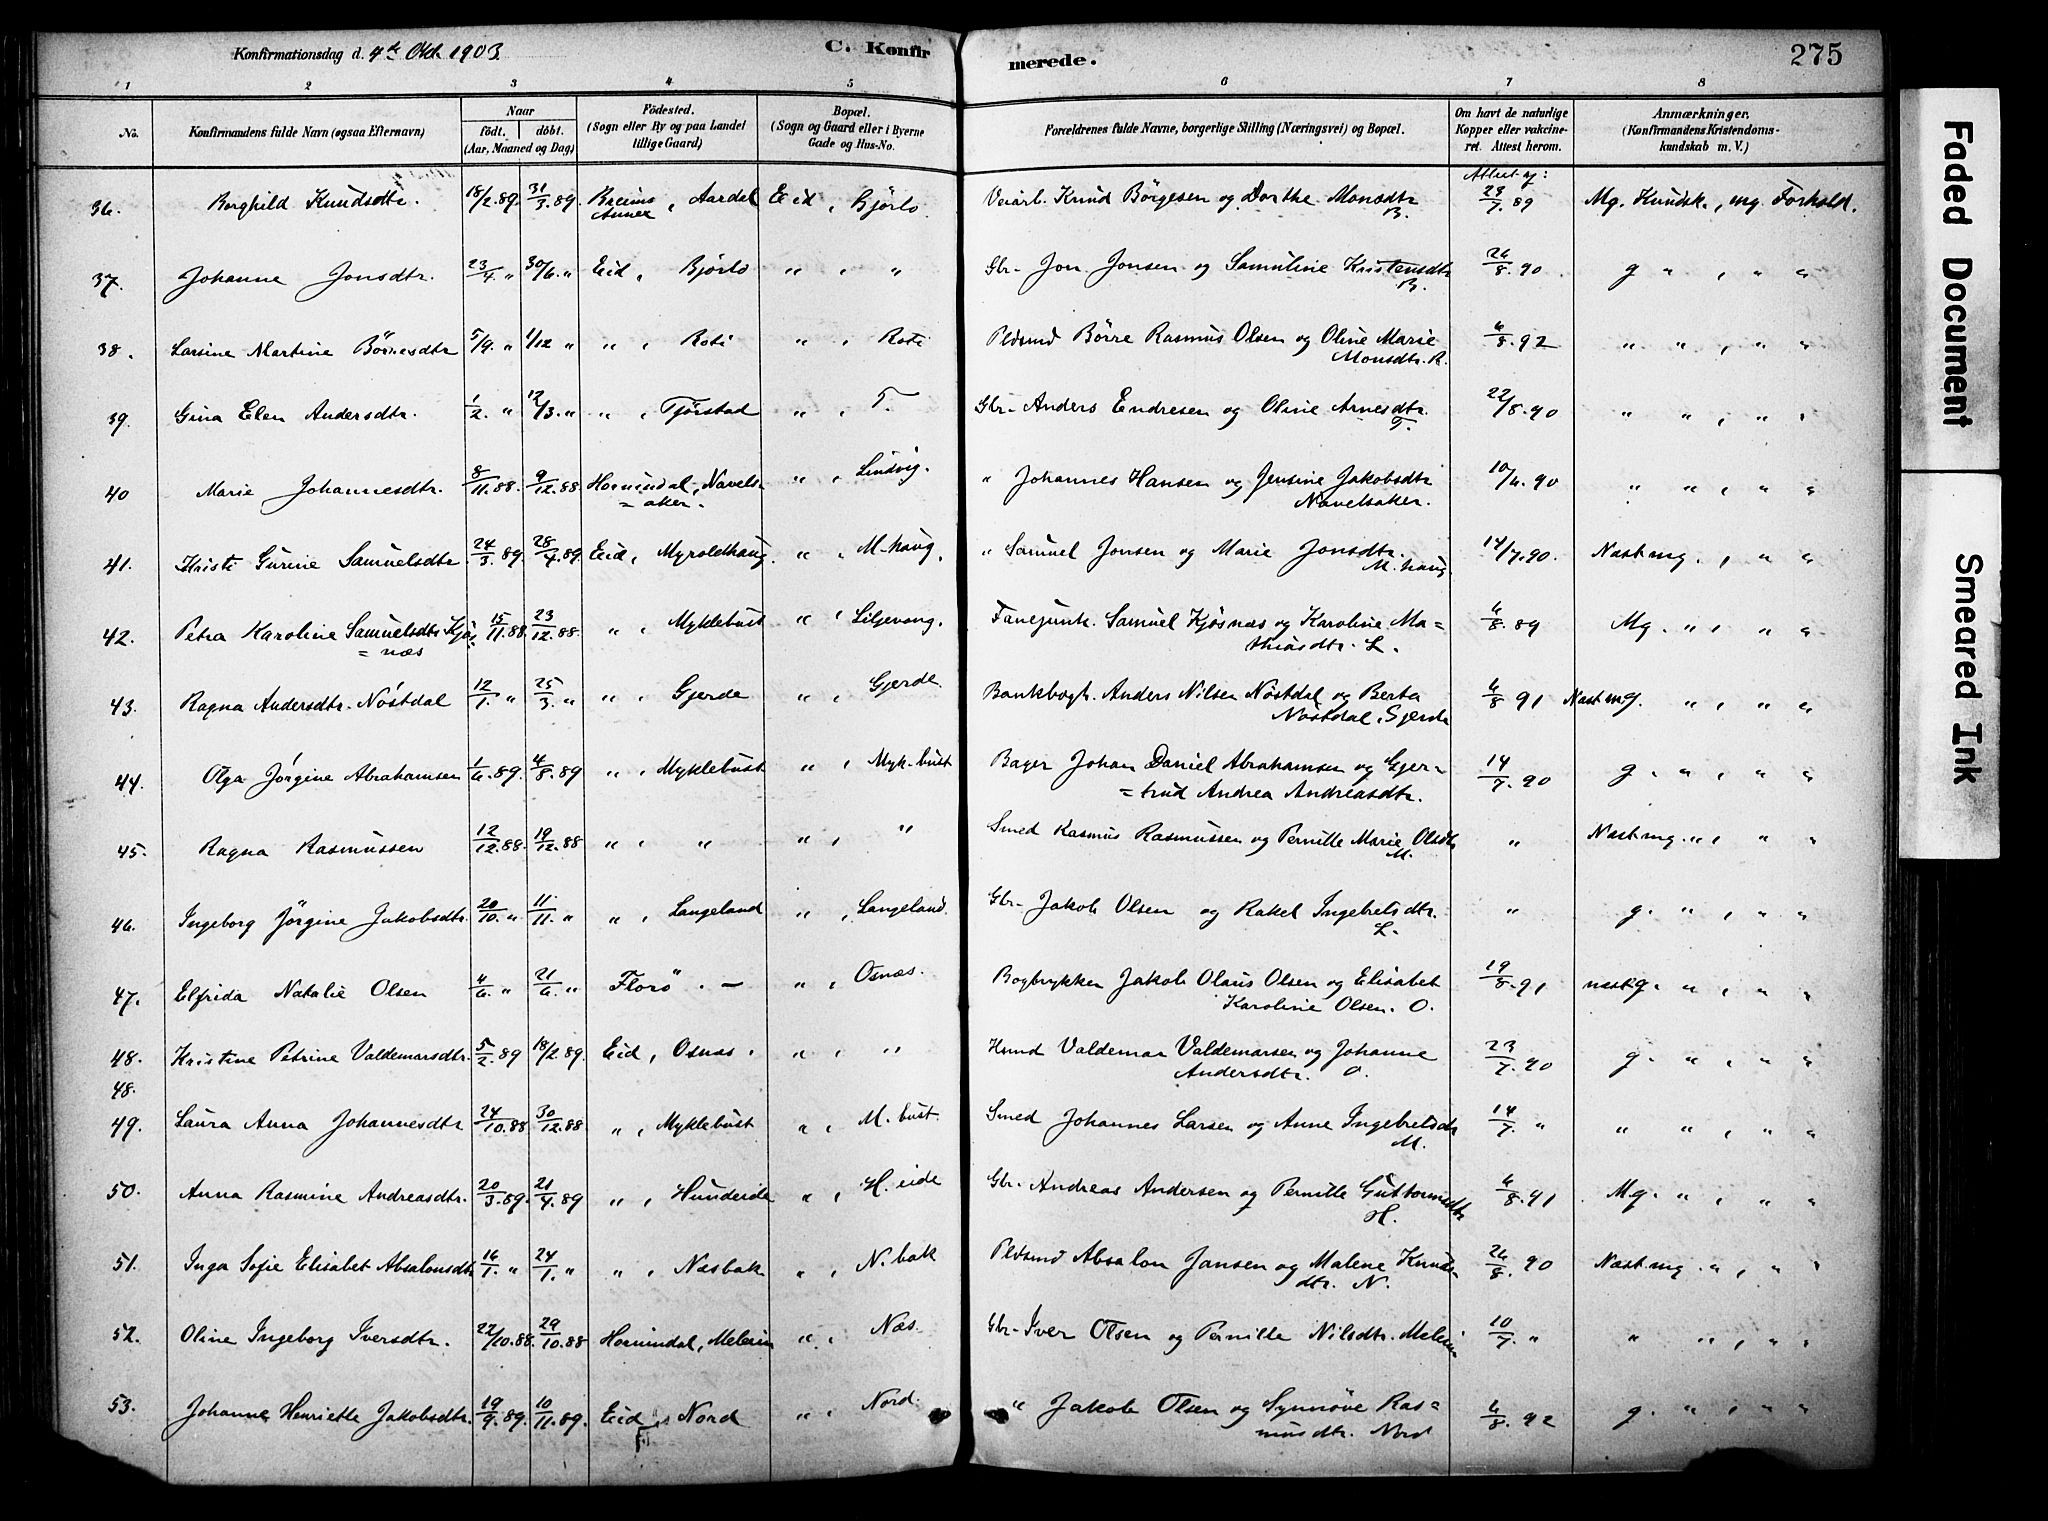 Konfirmationsdag d. 4de Okt. 1903.
C. Konfirmerede.
275
1 2 3 4 5 6 7 8
No.
Konfirmandens fulde Navn (ogsaa Efternavn)
Naar
födt. döbt.
(Aar, Maaned og Dag)
Födested.
(Sogn eller By og paa Landet tillige Gaard)
Bopæl.
(Sogn og Gaard eller i Byerne Gade og Hus-No.
Forældrenes fulde Navne, borgerlige Stilling (Næringsvei) og Bopæl.
Om havt de naturlige Kopper eller vakcineret. Attest herom.
Anmærkninger.
(Konfirmandens Kristendomskundskab m. V.)
36. Borghild Knudsdtr. 18/2.89 31/3.89 Breims Annex, Aardal Eid, Bjørlo Veiarb. Knud Börgesen og Dorthe Monsdtr. B. Attest af: 23/7 89 Mg. Kundsk., mg. Forhold.
37. Johanne Jonsdtr. 23/4 " 30/6 " Eid, Bjørlo " , " Gbr. Jon Jonsen og Samuline Kristensdtr. B. 26/8.90 g " , " "
38. Larsine Martine Börresdtr 5/9 " 1/12 " " , Roti " , Roti Pldsmd Börre Rasmus Olsen og Oline Marie Monsdtr. R. 6/8.92 " " , " "
39. Gina Elen Andersdtr. 1/2. " 12/3. " " , Tjörstad " , T. Gbr. Anders Endresen og Oline Arnesdtr. T. 22/8.90 " " , " "
40 Marie Johannesdtr. 8/11.88. 9/12.88. Hornindal, Navels=aker. " , Lindvig. " Johannes Hansen og Jensine Jakobsdtr Navelsaker. 10/6.90 " " , " "
41. Kristi Gurine Samuelsdtr. 24/3.89 28/4.89 Eid, Myroldhaug " , M.haug. " Samuel Jonsen og Marie Jonsdtr. M.haug. 14/7.90. Næst mg. , " "
42. Petra Karoline Samuelsdtr Kjös=næs 15/11.88. 23/12.88. " , Myklebust " , Liljevang. Fanejunk. Samuel Kjösnæs og Karoline Ma=thiasdtr. L. 6/8.89 Mg. " , " "
43. Ragna Andersdtr. Nöstdal 12/1. " 25/3. " " , Gjerde " , Gjerde. Bankbogh. Anders Nilsen Nöstdal og Berta Nöstdal, Gjerde 6/8 91 Næst mg. " , " "
44. Olga Jörgine Abrahamsen 1/6.89. 4/8.89 " , Myklebust " , Myk.bust Bager Johan Daniel Abrahamsen og Gjer=trud Andrea Andreasdtr. 14/7.90 g. " , " "
45. Ragna Rasmussen 12/12.88. 19/12.88 " , " " , " Smed Rasmus Rasmussen og Pernille Marie Olsdtr M. " Næst mg. " , " "
46. Ingeborg Jörgine Jakobsdtr. 20/10. " 11/11. " " , Langeland " , Langeland. Gbr. Jakob Olsen og Rakel Ingebretsdtr. L. " g. " , " "
47. Elfrida Natalie Olsen 4/6. " 21/6. " Florö. — " , Osnæs. Bogtrykker Jakob Olaus Olsen og Elisabet Karoline Olsen. O. 19/8.91 næst g. " , " "
48. Kristine Petrine Valdemarsdtr. 5/2.89 18/2.89. Eid, Osnæs. " , " Valdemar Valdemarsen og Johanne Andersdtr. O. 23/7.90 g. " , " "
48.
49. Laura Anna Johannesdtr 24/10.88 30/12.88 " , Myklebust " , M.bust Smed Johannes Larsen og Anne Ingebretsdtr M. 14/7. " " " , " "
50. Anna Rasmine Andreasdtr. 20/3.89. 21/4.89 " , Hundeide " , H.eide Gbr. Andreas Andersen og Pernille Guttormsdtr H. 6/8.91 Mg. " , " "
51. Inga Sofie Elisabet Absalonsdtr 16/1. " 24/1. " " , Næsbak " , N.bak Pldsmd Absalon Jansen og Malene Knuds=dtr. N. 26/8.90 Næst mg. " , "
52. Oline Ingeborg Iversdtr. 22/10.88. 29/10.88 Hornindal, Melheim " , Næs. Gbr. Iver Olsen og Pernille Nilsdtr. 10/7. " " " , " "
53. Johanne Henriette Jakobsdtr. 19/9.89. 10/11.89. Eid, Nord " , Nord. " Jakob Olsen og Synnöve Ras=musdtr. Nord 6/8.92 g. " , " "
Faded Document
Smeared Ink